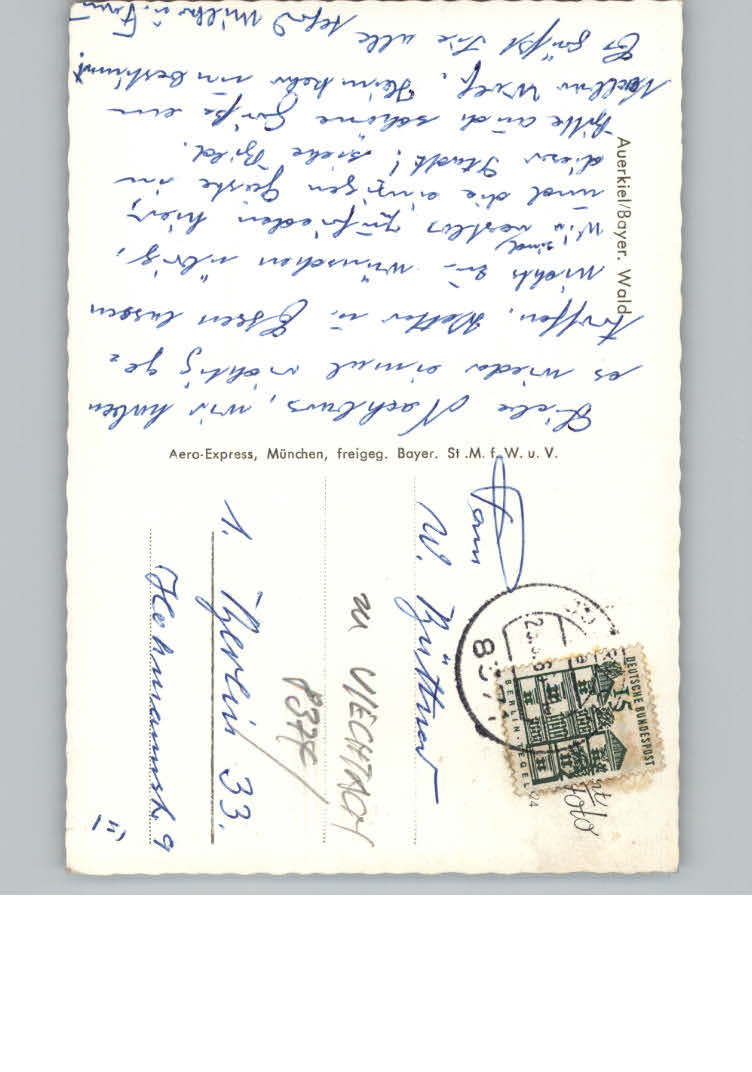 Liebe Nachbars, wir haben
es wieder einmal richtig ge=
troffen. Wetter u. Essen lassen
nichts zu wünschen übrig,
Wir sind restlos zufrieden hier,
und die einzigen Gäste in
dieser Stadt! siehe Bild.
Bitte auch schöne Grüße an
Wolf. Heimkehr unbestimmt!
Es grüßt Sie alle
u. Frau
Auerkiel/Bayer. Wald
Aero-Express, München, freigeg. Bayer. St.M.f.W.u.V.
Fam
W. Büttner
1. Berlin 33.
Hohmannstr. 9
b. VIECHTACH
8374
837
DEUTSCHE BUNDESPOST
15
BERLIN-TEGEL
Foto